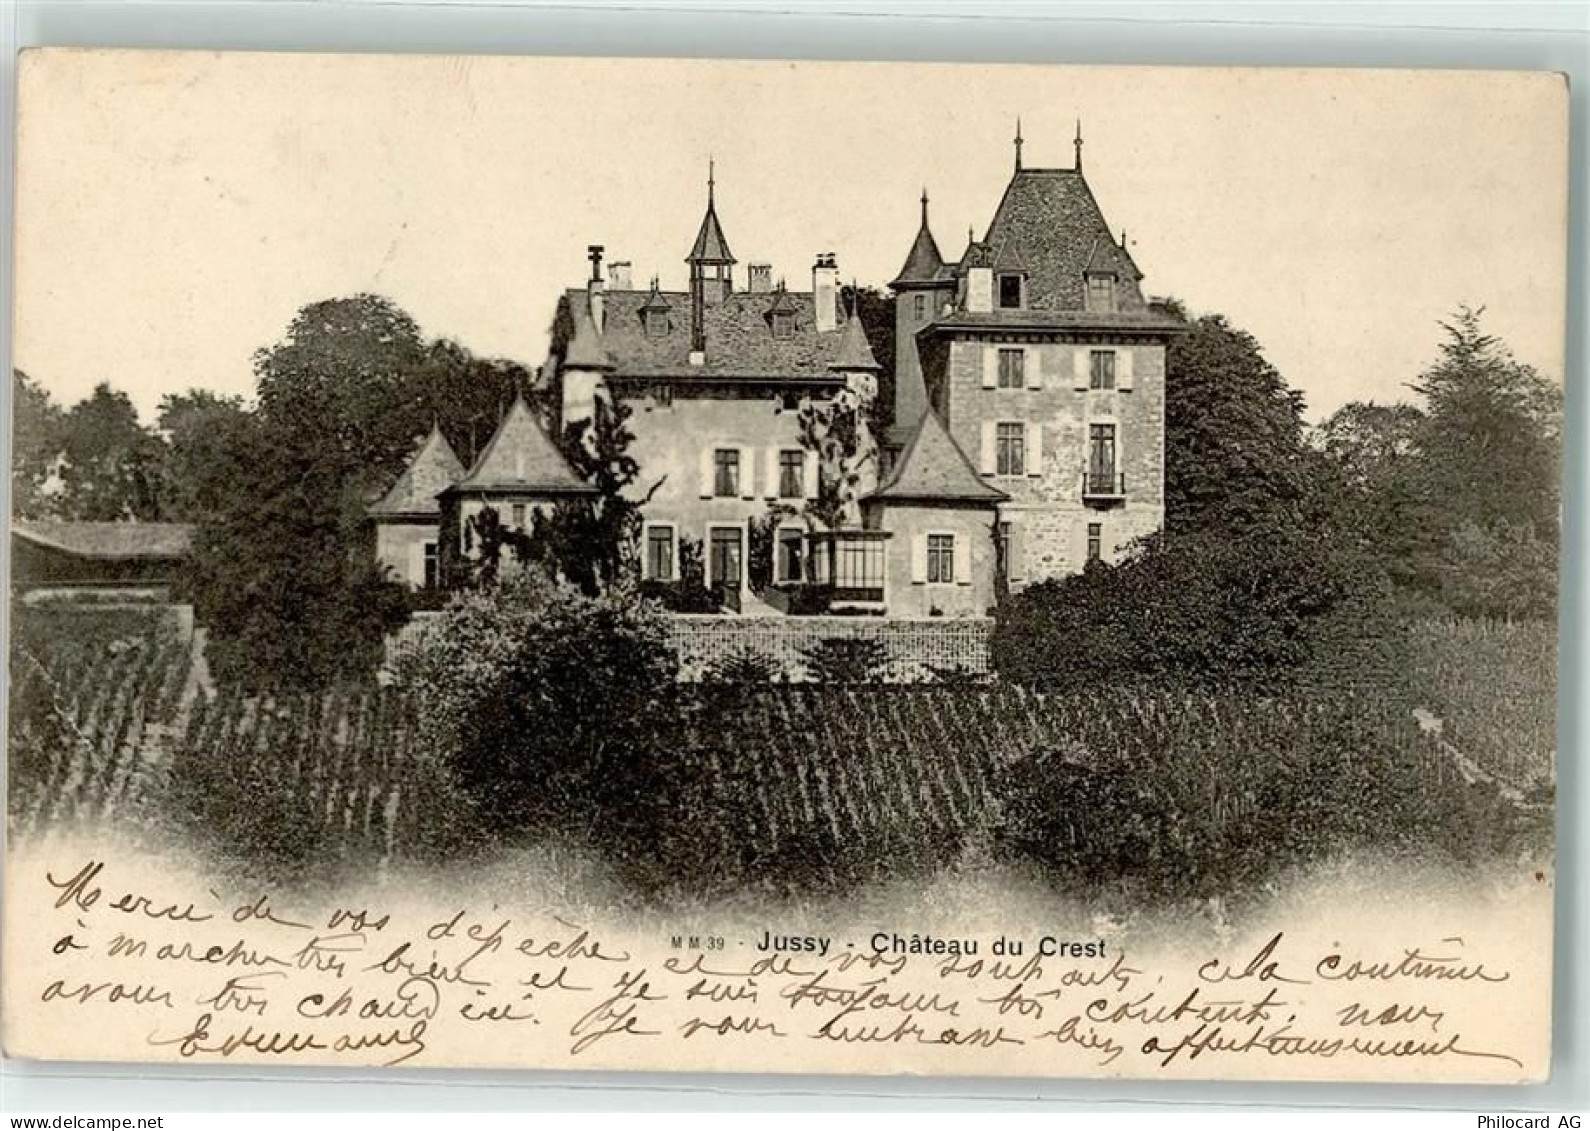 MM 39 - Jussy - Château du Crest
Merci de vos dépèche et de vos souhaits, cela continue
à marcher très bien et je suis toujours très content, nous
avons très chaud ici. Je vous embrasse bien affectueusement
Edmond
www.delcampe.net
Philocard AG